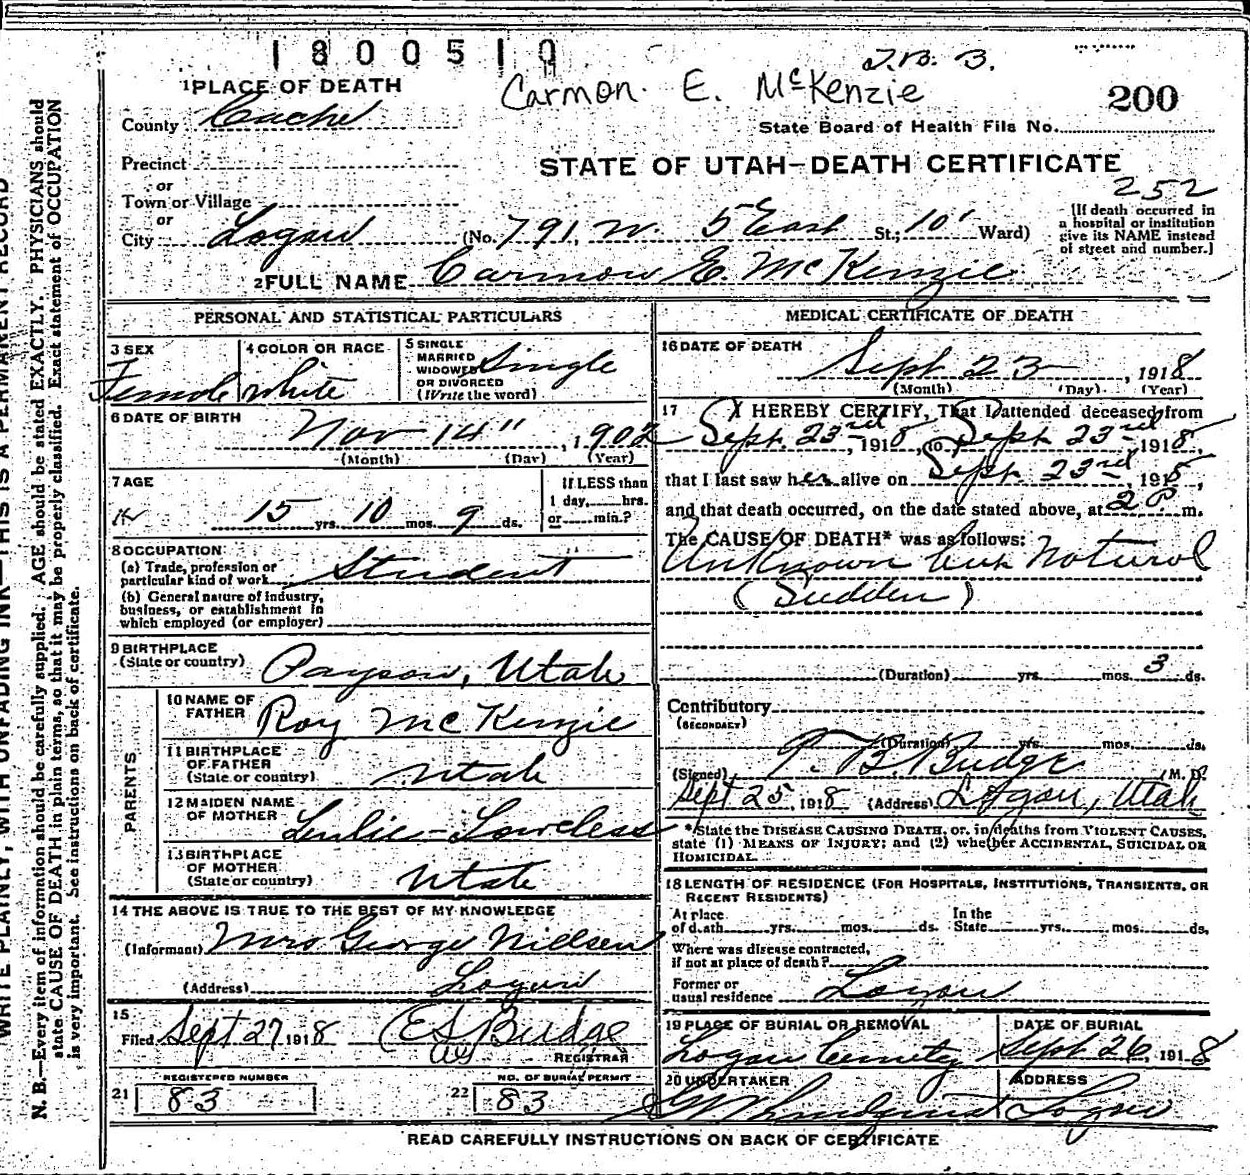 1800510
T. B. B.
Carmon E. McKenzie
200
1 PLACE OF DEATH
County Cache
State Board of Health File No.
Precinct
STATE OF UTAH—DEATH CERTIFICATE
or
Town or Village
252
or
City Logan (No. 791, N. 5 East St.; 10' Ward)
[If death occurred in a hospital or institution give its NAME instead of street and number.]
2 FULL NAME Carmon E. McKenzie
PERSONAL AND STATISTICAL PARTICULARS
3 SEX Female
4 COLOR OR RACE white
5 SINGLE MARRIED WIDOWED OR DIVORCED (Write the word) Single
6 DATE OF BIRTH Nov 14", 1902
(Month) (Day) (Year)
7 AGE
15 yrs. 10 mos. 9 ds.
If LESS than 1 day, hrs. or min.?
8 OCCUPATION
(a) Trade, profession or particular kind of work Student
(b) General nature of industry, business, or establishment in which employed (or employer)
9 BIRTHPLACE (State or country) Payson, Utah
PARENTS
10 NAME OF FATHER Roy McKenzie
11 BIRTHPLACE OF FATHER (State or country) Utah
12 MAIDEN NAME OF MOTHER Loveless
13 BIRTHPLACE OF MOTHER (State or country) Utah
14 THE ABOVE IS TRUE TO THE BEST OF MY KNOWLEDGE
(Informant) Mrs George Nielsen
(Address) Logan
15
Filed Sept 27 1918 E S Budge
REGISTRAR
REGISTERED NUMBER
21 83
NO. OF BURIAL PERMIT
22 83
MEDICAL CERTIFICATE OF DEATH
16 DATE OF DEATH
Sept 23, 1918
(Month) (Day) (Year)
17 I HEREBY CERTIFY, That I attended deceased from
Sept. 23rd, 1918, to Sept 23rd 1918,
that I last saw her alive on Sept. 23rd, 1918,
and that death occurred, on the date stated above, at 2 P. m.
The CAUSE OF DEATH* was as follows:
Unknown but natural
(Sudden)
(Duration) yrs. mos. 3 ds.
Contributory
(SECONDARY)
(Duration) yrs. mos. ds.
(Signed) T. B. Budge, M. D.
Sept 25, 1918 (Address) Logan, Utah
*State the DISEASE CAUSING DEATH, or, in deaths from VIOLENT CAUSES, state (1) MEANS OF INJURY; and (2) whether ACCIDENTAL, SUICIDAL OR HOMICIDAL.
18 LENGTH OF RESIDENCE (FOR HOSPITALS, INSTITUTIONS, TRANSIENTS, OR RECENT RESIDENTS)
At place of death yrs. mos. ds. In the State yrs. mos. ds.
Where was disease contracted, if not at place of death?
Former or usual residence Logan
19 PLACE OF BURIAL OR REMOVAL
Logan Cemetery
DATE OF BURIAL
Sept 26, 1918
20 UNDERTAKER
ADDRESS
Logan
READ CAREFULLY INSTRUCTIONS ON BACK OF CERTIFICATE
WRITE PLAINLY, WITH UNFADING INK—THIS IS A PERMANENT RECORD
N. B.—Every item of information should be carefully supplied. AGE should be stated EXACTLY. PHYSICIANS should
state CAUSE OF DEATH in plain terms, so that it may be properly classified. Exact statement of OCCUPATION
is very important. See instructions on back of certificate.